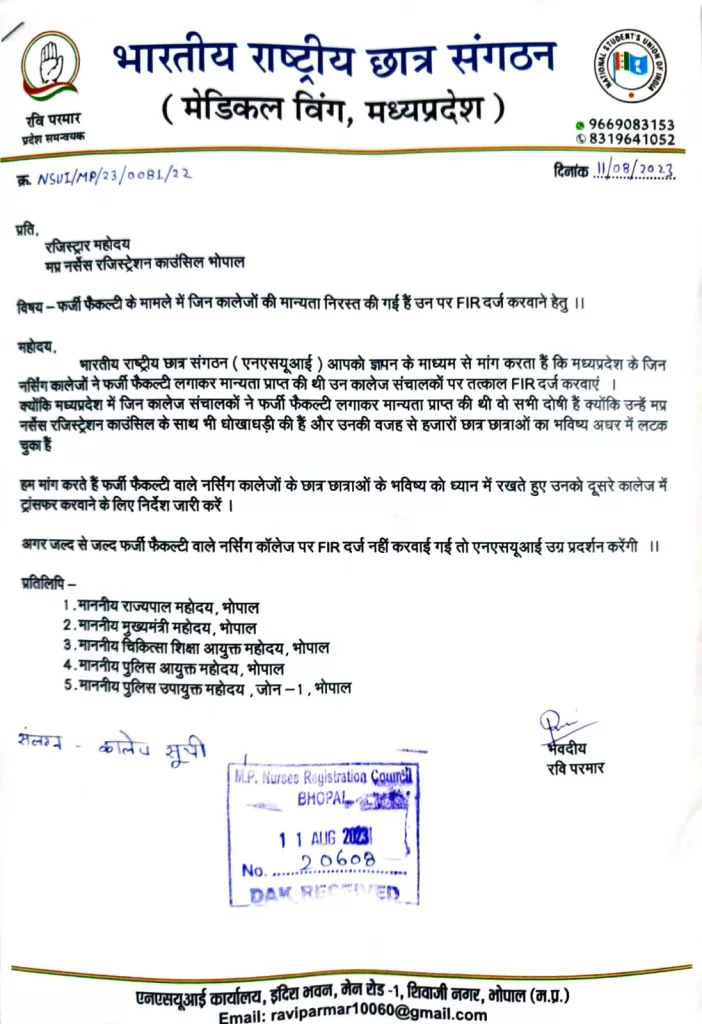 भारतीय राष्ट्रीय छात्र संगठन
( मेडिकल विंग, मध्यप्रदेश )
NATIONAL STUDENT'S UNION OF INDIA
रवि परमार
प्रदेश समन्वयक
9669083153
8319641052
क्र. NSUI/MP/23/0081/22
दिनांक 11/08/2023
प्रति,
रजिस्ट्रार महोदय
मप्र नर्सेस रजिस्ट्रेशन काउंसिल भोपाल
विषय – फर्जी फैकल्टी के मामले में जिन कालेजों की मान्यता निरस्त की गई हैं उन पर FIR दर्ज करवाने हेतु ।।
महोदय,
भारतीय राष्ट्रीय छात्र संगठन ( एनएसयूआई ) आपको ज्ञापन के माध्यम से मांग करता हैं कि मध्यप्रदेश के जिन
नर्सिंग कालेजों ने फर्जी फैकल्टी लगाकर मान्यता प्राप्त की थी उन कालेज संचालकों पर तत्काल FIR दर्ज करवाएं ।
क्योंकि मध्यप्रदेश में जिन कालेज संचालकों ने फर्जी फैकल्टी लगाकर मान्यता प्राप्त की थी वो सभी दोषी हैं क्योंकि उन्हें मप्र
नर्सेस रजिस्ट्रेशन काउंसिल के साथ भी धोखाधड़ी की हैं और उनकी वजह से हजारों छात्र छात्राओं का भविष्य अधर में लटक
चुका हैं
हम मांग करते हैं फर्जी फैकल्टी वाले नर्सिंग कालेजों के छात्र छात्राओं के भविष्य को ध्यान में रखते हुए उनको दूसरे कालेज में
ट्रांसफर करवाने के लिए निर्देश जारी करें ।
अगर जल्द से जल्द फर्जी फैकल्टी वाले नर्सिंग कॉलेज पर FIR दर्ज नहीं करवाई गई तो एनएसयूआई उग्र प्रदर्शन करेंगी ।।
प्रतिलिपि –
1.माननीय राज्यपाल महोदय, भोपाल
2.माननीय मुख्यमंत्री महोदय, भोपाल
3.माननीय चिकित्सा शिक्षा आयुक्त महोदय, भोपाल
4.माननीय पुलिस आयुक्त महोदय, भोपाल
5.माननीय पुलिस उपायुक्त महोदय , जोन –1, भोपाल
संलग्न - कालेज सूची
भवदीय
रवि परमार
M.P. Nurses Registration Council
BHOPAL
11 AUG 2023
No. 20608
DAK RECEIVED
एनएसयूआई कार्यालय, इंदिरा भवन, मेन रोड -1, शिवाजी नगर, भोपाल (म.प्र.)
Email: raviparmar10060@gmail.com